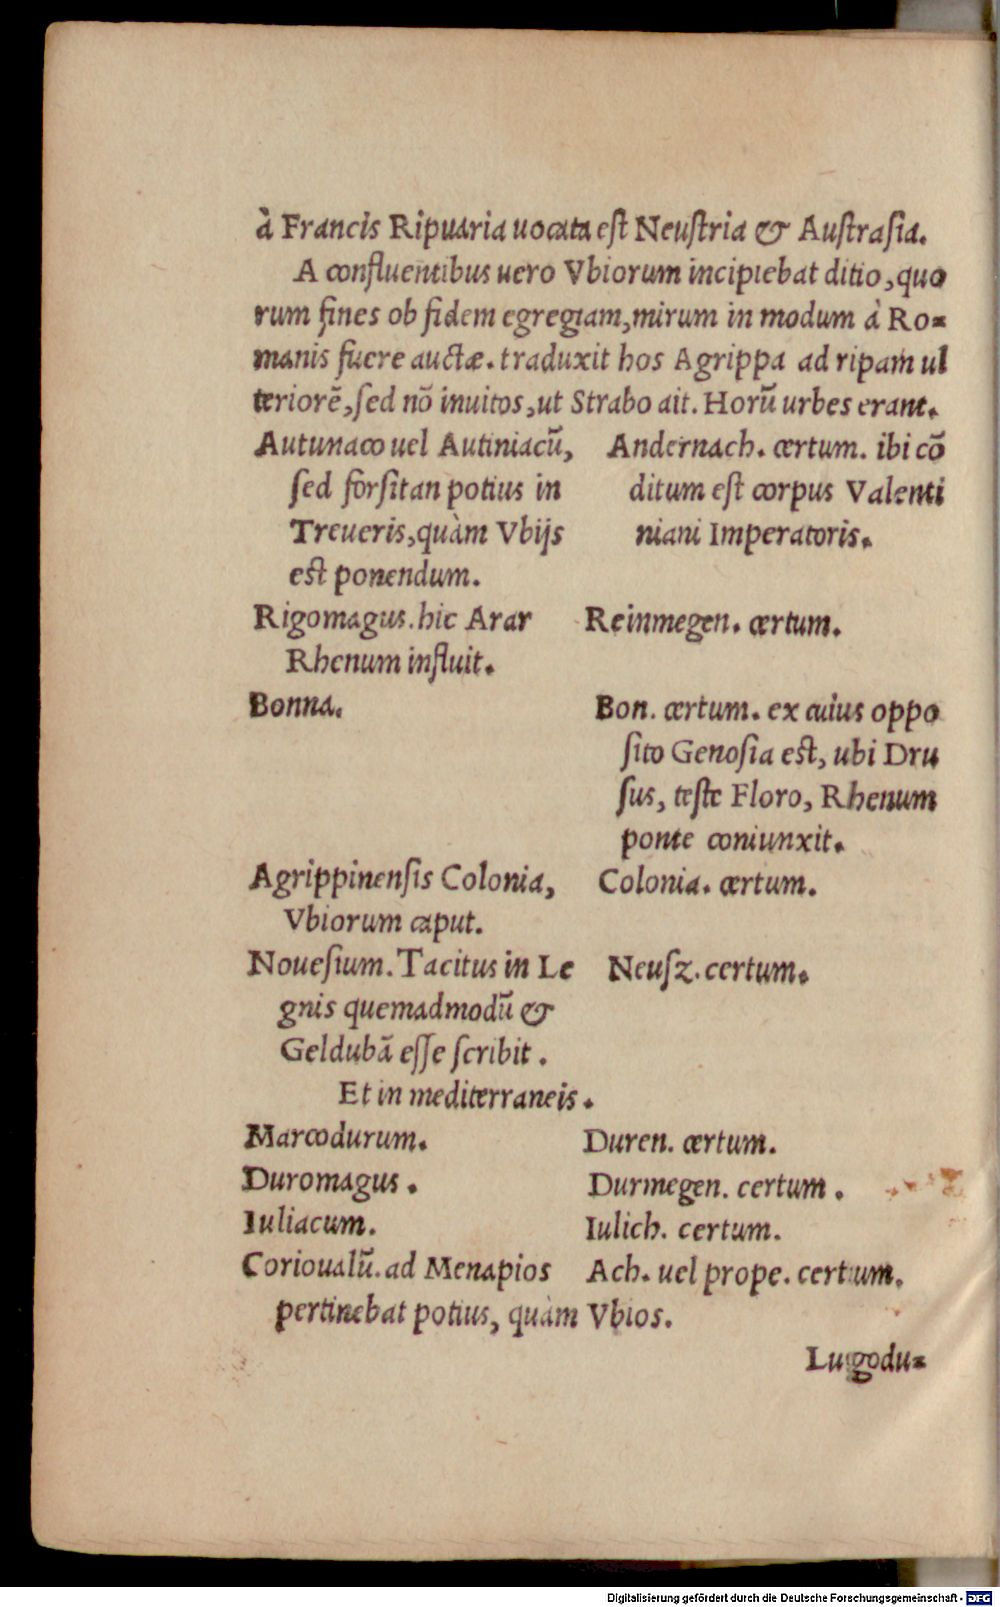 à Francis Ripuaria uocata eſt Neuſtria & Auſtraſia.
A confluentibus uero Vbiorum incipiebat ditio, quo
rum fines ob fidem egregiam, mirum in modum à Ro-
manis fuere auctæ. traduxit hos Agrippa ad ripam ul
teriorẽ, ſed nõ inuitos, ut Strabo ait. Horũ urbes erant.
Autunaco uel Autiniacũ, Andernach. certum. ibi cõ
ſed forſitan potius in ditum eſt corpus Valenti
Treueris, quàm Vbijs niani Imperatoris.
est ponendum.
Rigomagus. hic Arar Reinmegen. certum.
Rhenum influit.
Bonna. Bon. certum. ex cuius oppo
ſito Genoſia eſt, ubi Dru
ſus, teſte Floro, Rhenum
ponte coniunxit.
Agrippinenſis Colonia, Colonia. certum.
Vbiorum caput.
Noueſium. Tacitus in Le Neuſz. certum.
gnis quemadmodũ &
Geldubã eſſe ſcribit.
Et in mediterraneis.
Marcodurum. Duren. certum.
Duromagus. Durmegen. certum.
Iuliacum. Iulich. certum.
Corioualũ. ad Menapios Ach. uel prope. certum.
pertinebat potius, quàm Vbios.
Lugodu-
Digitalisierung gefördert durch die Deutsche Forschungsgemeinschaft - DFG